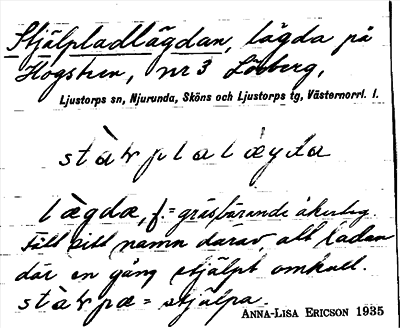 Stjälpladlägdan, lägda på
Högsten, nr 3 Löberg,
Ljustorps sn, Njurunda, Sköns och Ljustorps tg, Västernorrl. l.
stàɬplalægda
lægda, f. = gräsbärande åkerteg.
Fått sitt namn därav, att ladan
där en gång stjälpt omkull.
stàɬpa = stjälpa.
ANNA-LISA ERICSON 1935